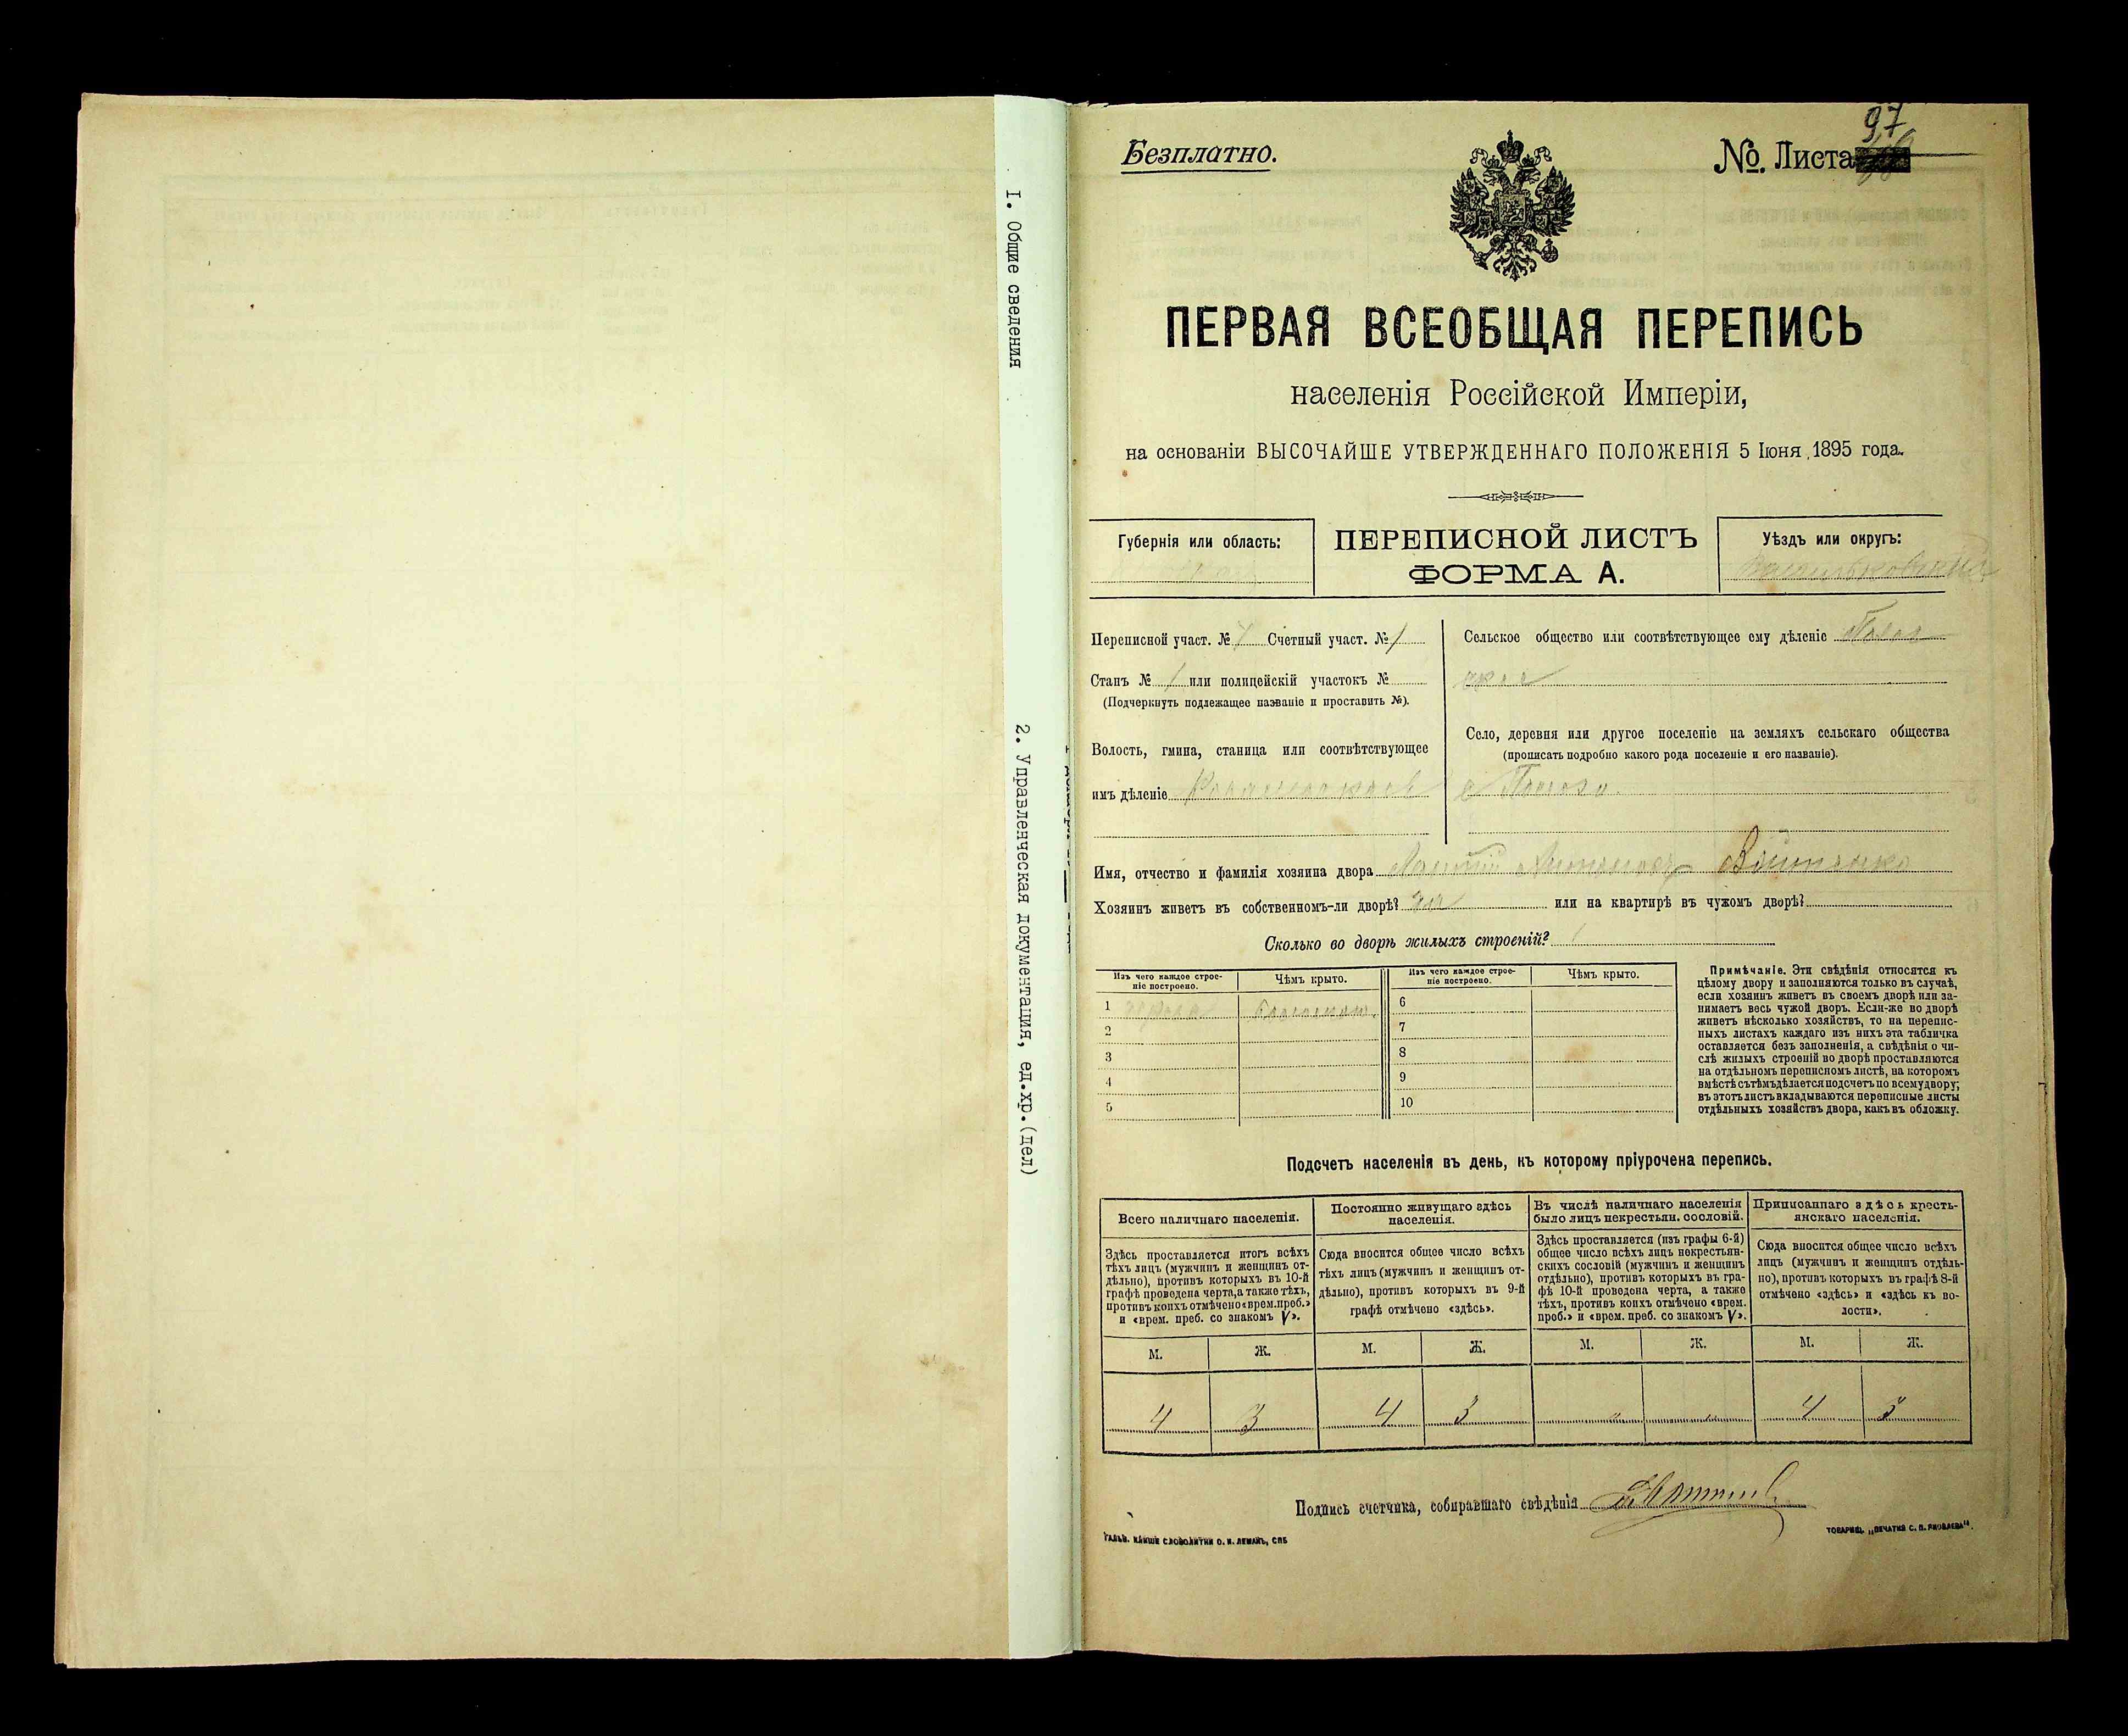 I. Общие сведения
2. Управленческая документация, ед.хр.(дел)
97
Безплатно.
№. Листа
ПЕРВАЯ ВСЕОБЩАЯ ПЕРЕПИСЬ
населенія Россійской Имперіи,
на основаніи ВЫСОЧАЙШЕ УТВЕРЖДЕННАГО ПОЛОЖЕНІЯ 5 Іюня 1895 года.
Губернія или область:
ПЕРЕПИСНОЙ ЛИСТЪ
ФОРМА А.
Уѣздъ или округъ:
Васильковскій
Переписной участ. № 4 Счетный участ. № 1
Станъ № 1 или полицейскій участокъ №
(Подчеркнуть подлежащее названіе и проставить №).
Волость, гмина, станица или соотвѣтствующее
имъ дѣленіе
Сельское общество или соотвѣтствующее ему дѣленіе
Село, деревня или другое поселеніе на земляхъ сельскаго общества
(прописать подробно какого рода поселеніе и его названіе).
с
Имя, отчество и фамилія хозяина двора
Хозяинъ живетъ въ собственномъ-ли дворѣ? да или на квартирѣ въ чужомъ дворѣ?
Сколько во дворѣ жилыхъ строеній? 1
Изъ чего каждое строе-
ніе построено.
Чѣмъ крыто.
1
2
3
4
5
Изъ чего каждое строе-
ніе построено.
Чѣмъ крыто.
6
7
8
9
10
Примѣчаніе. Эти свѣдѣнія относятся къ
цѣлому двору и заполняются только въ случаѣ,
если хозяинъ живетъ въ своемъ дворѣ или за-
нимаетъ весь чужой дворъ. Если-же во дворѣ
живетъ нѣсколько хозяйствъ, то на перепис-
ныхъ листахъ каждаго изъ нихъ эта табличка
оставляется безъ заполненія, а свѣдѣнія о чи-
слѣ жилыхъ строеній во дворѣ проставляются
на отдѣльномъ переписномъ листѣ, на которомъ
вмѣстѣ съ тѣмъ дѣлается подсчетъ по всему двору;
въ этотъ листъ вкладываются переписные листы
отдѣльныхъ хозяйствъ двора, какъ въ обложку.
Подсчетъ населенія въ день, къ которому пріурочена перепись.
Всего наличнаго населенія.
Здѣсь проставляется итогъ всѣхъ
тѣхъ лицъ (мужчинъ и женщинъ от-
дѣльно), противъ которыхъ въ 10-й
графѣ проведена черта, а также тѣхъ,
противъ коихъ отмѣчено «врем. преб.»
и «врем. преб. со знакомъ V».
М. Ж.
4 3
Постоянно живущаго здѣсь
населенія.
Сюда вносится общее число всѣхъ
тѣхъ лицъ (мужчинъ и женщинъ от-
дѣльно), противъ которыхъ въ 9-й
графѣ отмѣчено «здѣсь».
М. Ж.
4 3
Въ числѣ наличнаго населенія
было лицъ некрестьян. сословій.
Здѣсь проставляется (изъ графы 6-й)
общее число всѣхъ лицъ некрестьян-
скихъ сословій (мужчинъ и женщинъ
отдѣльно), противъ которыхъ въ гра-
фѣ 10-й проведена черта, а также
тѣхъ, противъ коихъ отмѣчено «врем.
преб.» и «врем. преб. со знакомъ V».
М. Ж.
" "
Приписаннаго здѣсь кресть-
янскаго населенія.
Сюда вносится общее число всѣхъ
лицъ (мужчинъ и женщинъ отдѣль-
но), противъ которыхъ въ графѣ 8-й
отмѣчено «здѣсь» и «здѣсь къ во-
лости».
М. Ж.
4 3
Подпись счетчика, собиравшаго свѣдѣнія
ГАЛЬВ. КЛИШЕ СЛОВОЛИТНИ О. И. ЛЕМАНЪ, СПБ
ТОВАРИЩ. „ПЕЧАТНЯ С. П. ЯКОВЛЕВА".